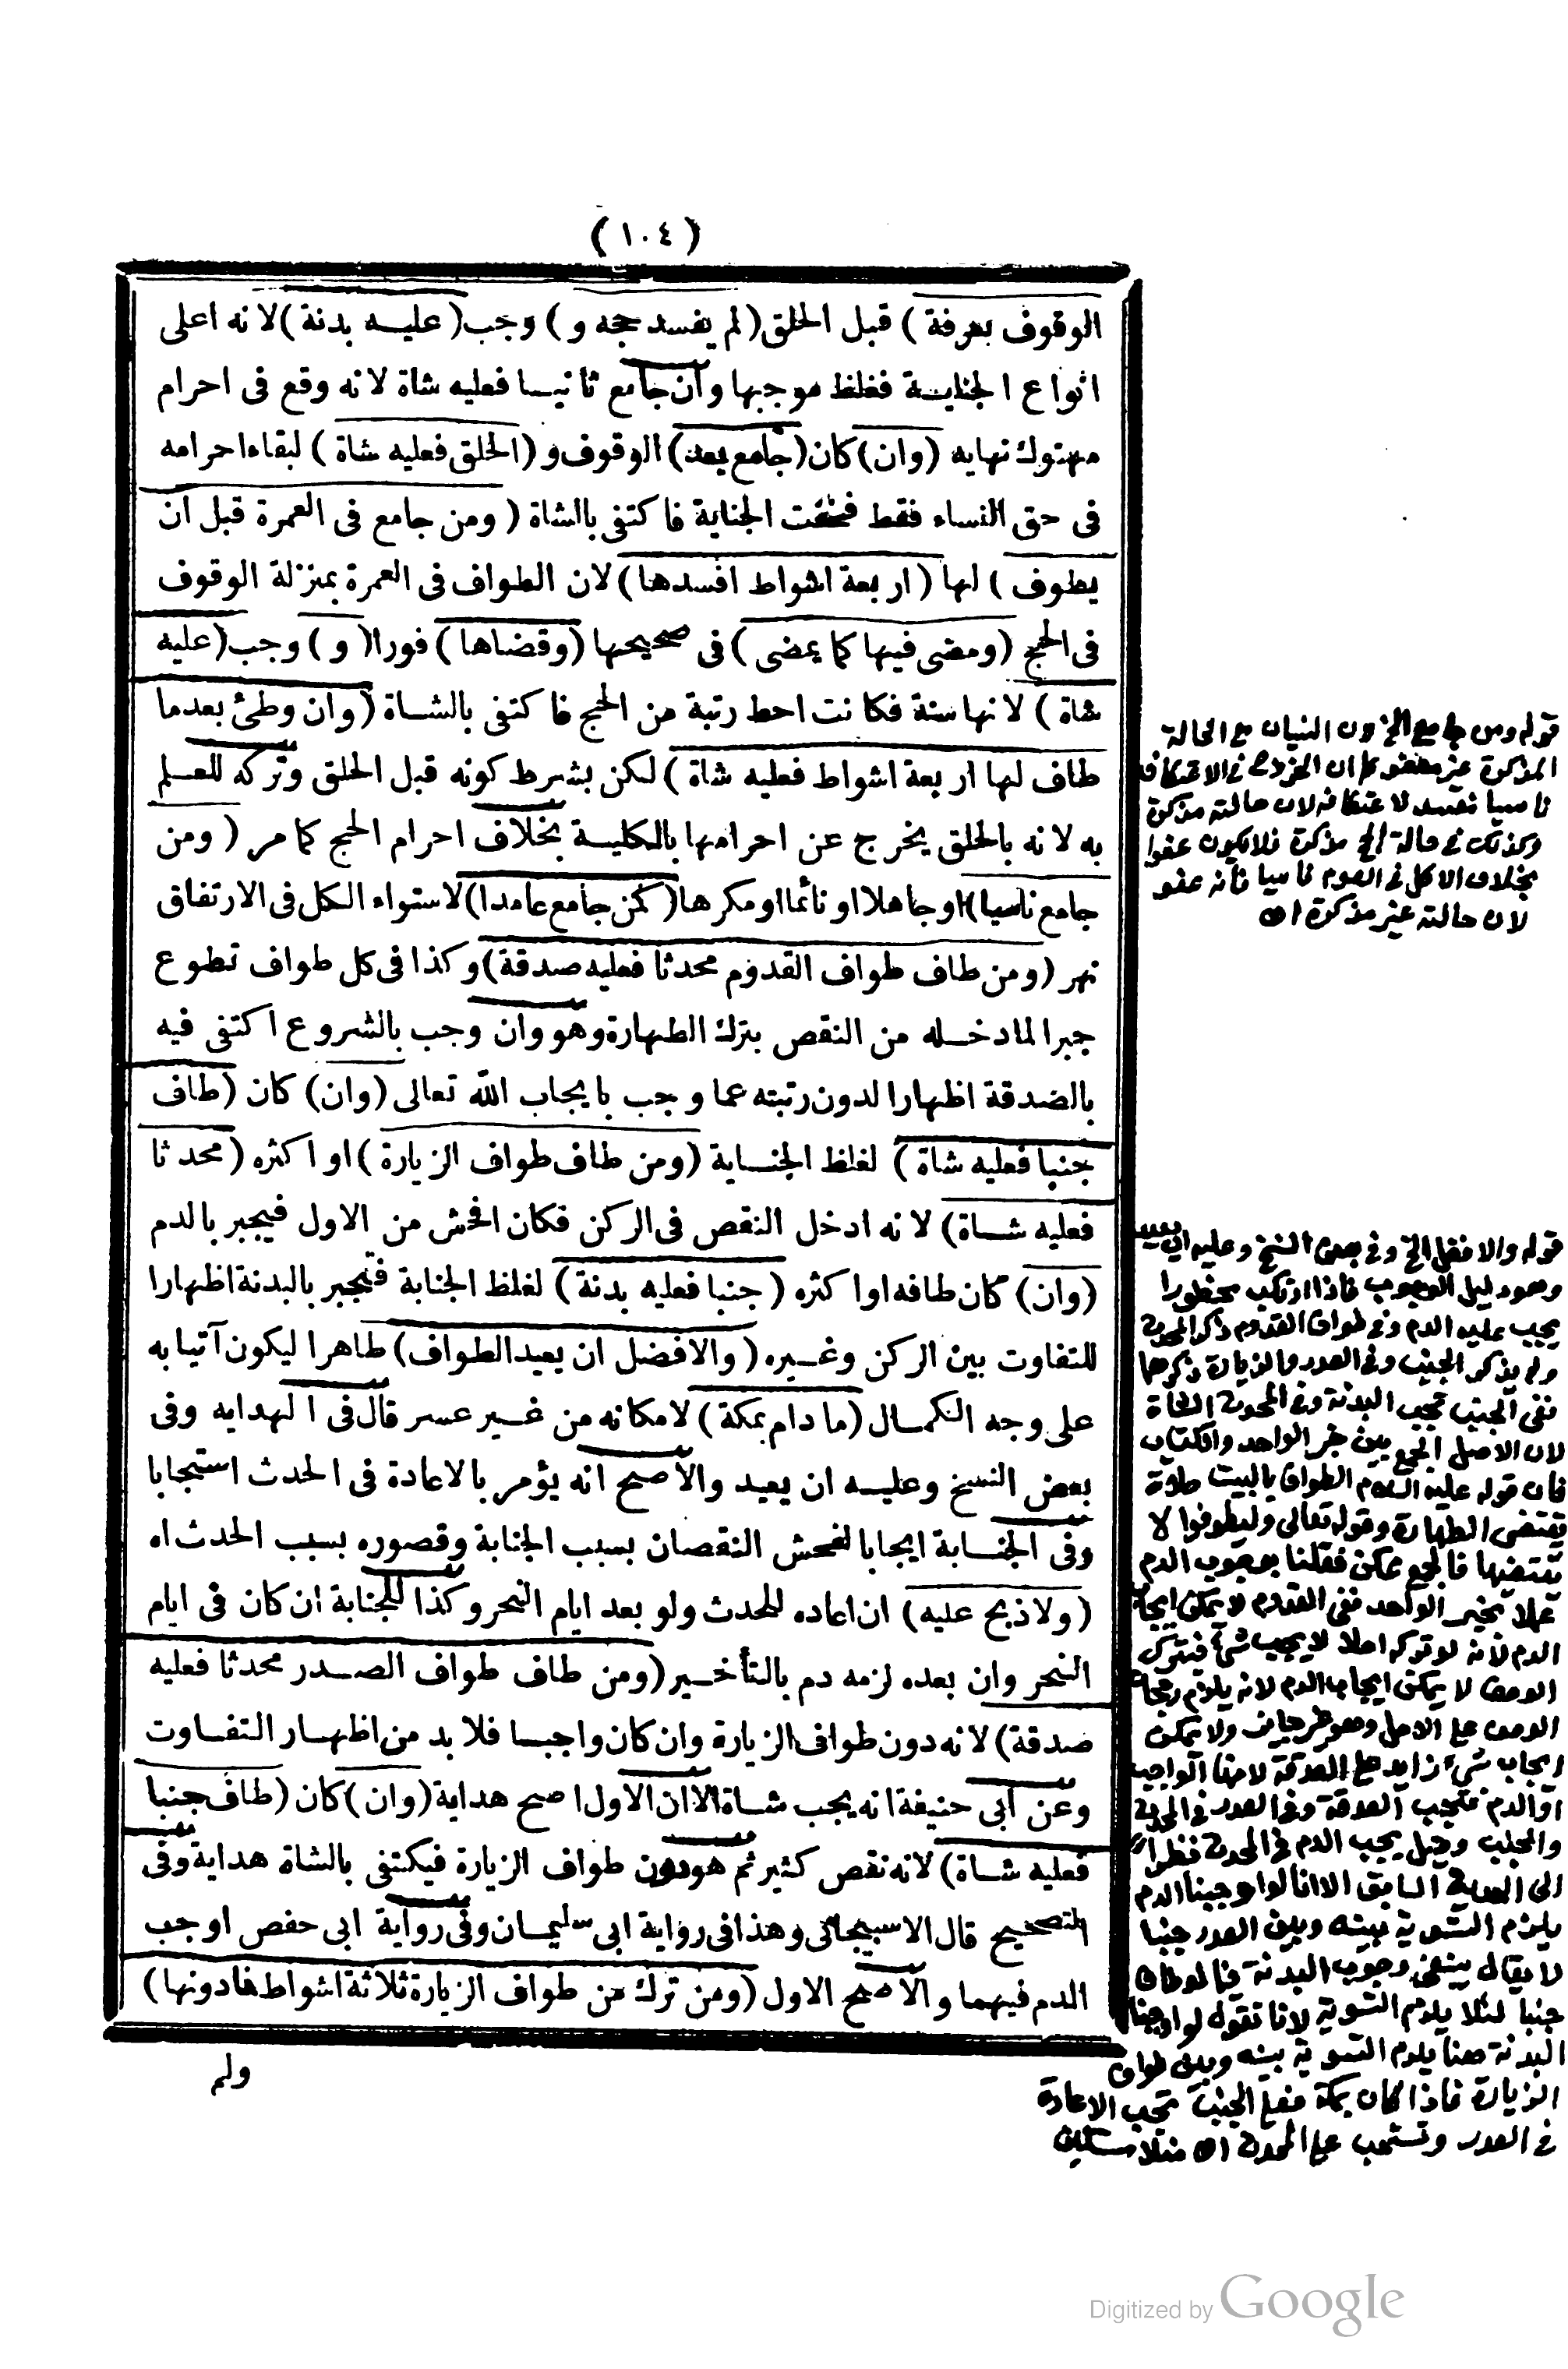 (١٠٤)
الوقوف بعرفة) قبل الحلق (لم يفسد حجه و) وجب (عليه بدنة) لانه اعلى
انواع الجناية فغلظ موجبها وان جامع ثانيا فعليه شاة لانه وقع فى احرام
مهتوك نهايه (وان) كان (جامع بعد) الوقوف و (الحلق فعليه شاة) لبقاء احرامه
فى حق النساء فقط فخفت الجناية فاكتفى بالشاة (ومن جامع فى العمرة قبل ان
يطوف) لها (اربعة اشواط افسدها) لان الطواف فى العمرة بمنزلة الوقوف
فى الحج (ومضى فيها كما يمضى) فى صحيحها (وقضاها) فورا (و) وجب (عليه
شاة) لانها سنة فكانت احط رتبة من الحج فاكتفى بالشاة (وان وطئ بعدما
طاف لها اربعة اشواط فعليه شاة) لكن بشرط كونه قبل الحلق وتركه للعلم
به لانه بالحلق يخرج عن احرامها بالكلية بخلاف احرام الحج كما مر (ومن
جامع ناسيا) او جاهلا او نائما او مكرها (كمن جامع عامدا) لاستواء الكل فى الارتفاق
نهر (ومن طاف طواف القدوم محدثا فعليه صدقة) وكذا فى كل طواف تطوع
جبرا لما دخله من النقص بترك الطهارة وهو وان وجب بالشروع اكتفى فيه
بالصدقة اظهارا لدون رتبته عما وجب بايجاب الله تعالى (وان) كان (طاف
جنبا فعليه شاة) لغلظ الجناية (ومن طاف طواف الزيارة) او اكثره (محدثا
فعليه شاة) لانه ادخل النقص فى الركن فكان افحش من الاول فيجبر بالدم
(وان) كان طافه او اكثره (جنبا فعليه بدنة) لغلظ الجنابة فتجبر بالبدنة اظهارا
للتفاوت بين الركن وغيره (والافضل ان يعيد الطواف) طاهرا ليكون آتيا به
على وجه الكمال (ما دام بمكة) لامكانه من غير عسر قال فى الهدايه وفى
بعض النسخ وعليه ان يعيد والاصح انه يؤمر بالاعادة فى الحدث استحبابا
وفى الجنابة ايجابا لفحش النقصان بسبب الجنابة وقصوره بسبب الحدث اه
(ولا ذبح عليه) ان اعاده للحدث ولو بعد ايام النحر وكذا للجنابة ان كان فى ايام
النحر وان بعده لزمه دم بالتأخير (ومن طاف طواف الصدر محدثا فعليه
صدقة) لانه دون طواف الزيارة وان كان واجبا فلا بد من اظهار التفاوت
وعن أبى حنيفة انه يجب شاة الا ان الاول اصح هداية (وان) كان (طاف جنبا
فعليه شاة) لانه نقص كثير ثم هو دون طواف الزيارة فيكتفى بالشاة هداية وفى
التصحيح قال الاسبيجابى وهذا فى رواية ابى سليمان وفى رواية ابى حفص اوجب
الدم فيهما والاصح الاول (ومن ترك من طواف الزيارة ثلاثة اشواط فادونها)
ولم
قوله ومن جامع الخ ون النسيان مع الحالة
المذكرة غير معفو كما ان الخروج فى الاعتكاف
ناسيا مفسد لاعتكافه لان حالته مذكرة
وكذلك فى حالة الحج مذكرة فلا يكون عفوا
بخلاف الاكل فى الصوم ناسيا فانه عفو
لان حالته غير مذكرة اه
قوله والافضل الخ وفى بعض النسخ وعليه ان يعيد
وهو دليل الوجوب فاذا ارتكب محظورا
يجب عليه الدم وفى طواف القدوم ذكر المحدث
ولم يذكر الجنب وفى الصدر والزيارة ذكرهما
ففى الجنب تجب البدنة وفى المحدث الشاة
لان الاصل الجمع بين خبر الواحد والكتاب
فان قوله عليه السلام الطواف بالبيت صلاة
يقتضى الطهارة وقوله تعالى وليطوفوا لا
يقتضيها فالجمع ممكن فقلنا بوجوب الدم
عملا بخبر الواحد ففى القدوم لا يمكن ايجاب
الدم لانه لو تركه اصلا لا يجب شئ فبترك
الوصف لا يمكن ايجاب الدم لانه يلزم رجحان
الوصف على الاصل وهو غير جايز ولا يمكن
ايجاب شئ زايد على الصدقة لانها الواجب
او الدم فتجب الصدقة وفى الصدر فى المحدث
والجنب وقيل يجب الدم فى المحدث نظرا
الى الحديث السابق الا انا لو اوجبنا الدم
يلزم التسوية بينه وبين الصدر جنبا
لا يقال ينبغى وجوب البدنة فيما لو طاف
جنبا لئلا يلزم التسوية لانا نقول لو اوجبنا
البدنة هنا يلزم التسوية بينه وبين طواف
الزيارة فاذا كان بمكة فعلى الجنب تجب الاعادة
فى الصدر وتستحب على المحدث اه منلا مسكين
Digitized by Google